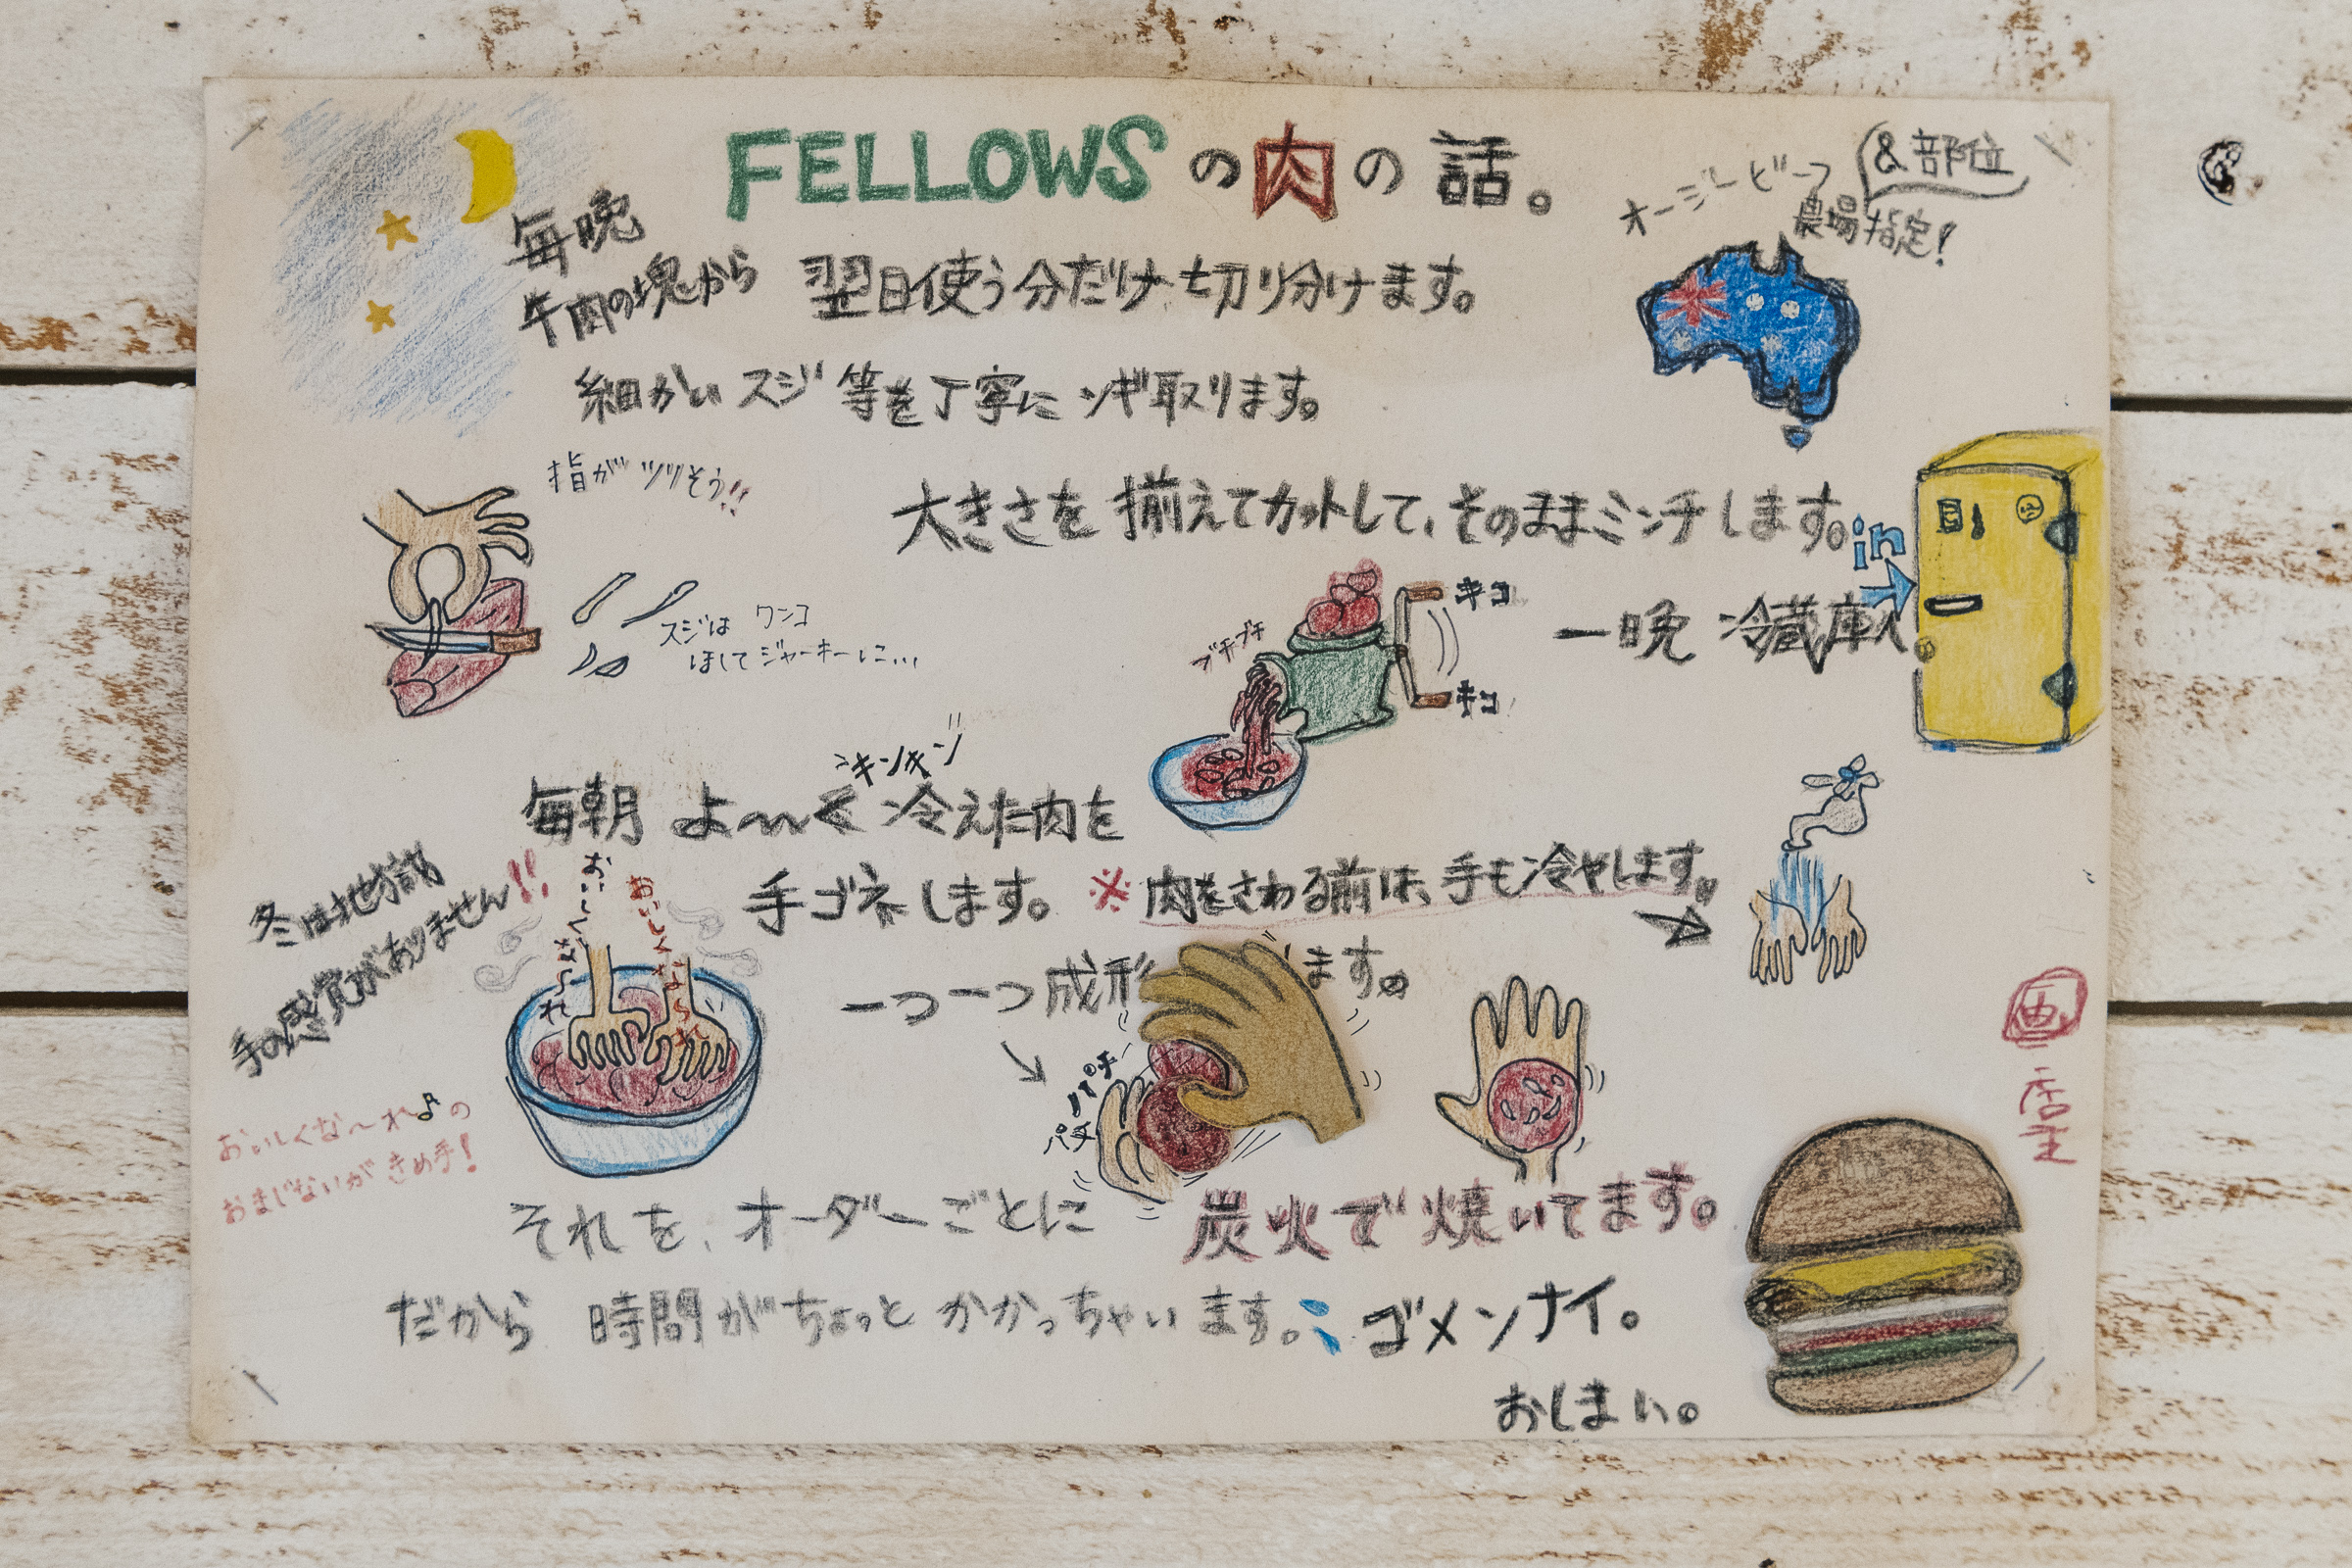 FELLOWSの肉の話。
オージービーフ
&部位
農場指定!
毎晩
牛肉の塊から 翌日使う分だけ切り分けます。
細かい スジ等を丁寧にソギ取ります。
指がツリそう!!
大きさを揃えてカットして、そのままミンチします。
in
スジは ワンコ
ほしてジャーキーに...
ブチブチ
キコ
キコ
一晩 冷蔵庫へ。
キンキン
毎朝 よ〜く冷えた肉を
手ゴネします。※肉をさわる前は、手も冷やします。
冬は地獄
手の感覚がありません!!
おいしくなぁれ
おいしくなられ
一つ一つ成形 ます。
パチ
パチ
おいしくな〜れ♪の
おまじないがきめ手!
画
それを、オーダーごとに 炭火で焼いてます。
だから 時間がちょっと かかっちゃいます。ゴメンナイ。
おしまい。